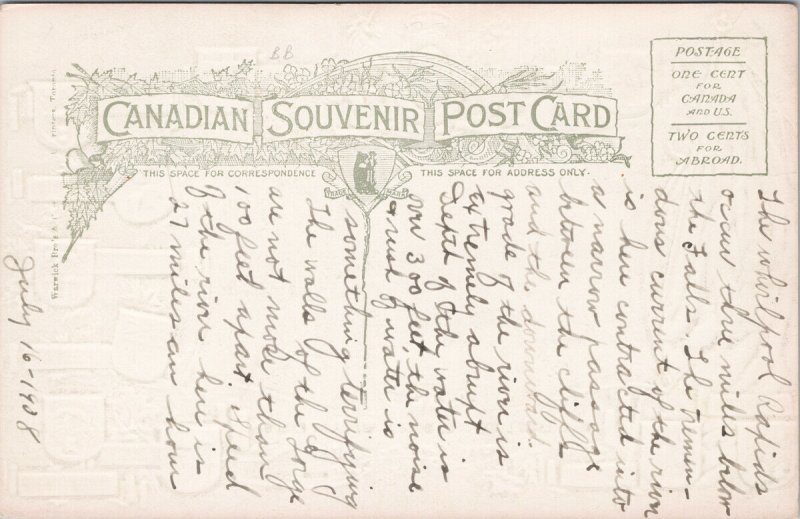 BB
CANADIAN SOUVENIR POST CARD
THIS SPACE FOR CORRESPONDENCE
THIS SPACE FOR ADDRESS ONLY.
POSTAGE
ONE CENT
FOR
CANADA
AND U.S.
TWO CENTS
FOR
ABROAD.
TRADE MARK
Warwick Bro's &
Toronto
The whirlpool Rapids
occur three miles below
the Falls. The Tremen-
dous current of the river
is here contracted into
a narrow passage
between the cliffs
and the downward
grade of the river is
extremely abrupt
Dept of the water is
over 300 feet the noise
rush of water is
something terrifying
The walls of the Gorge
are not more than
100 feet apart speed
of the river here is
27 miles an hour
July 16-1908